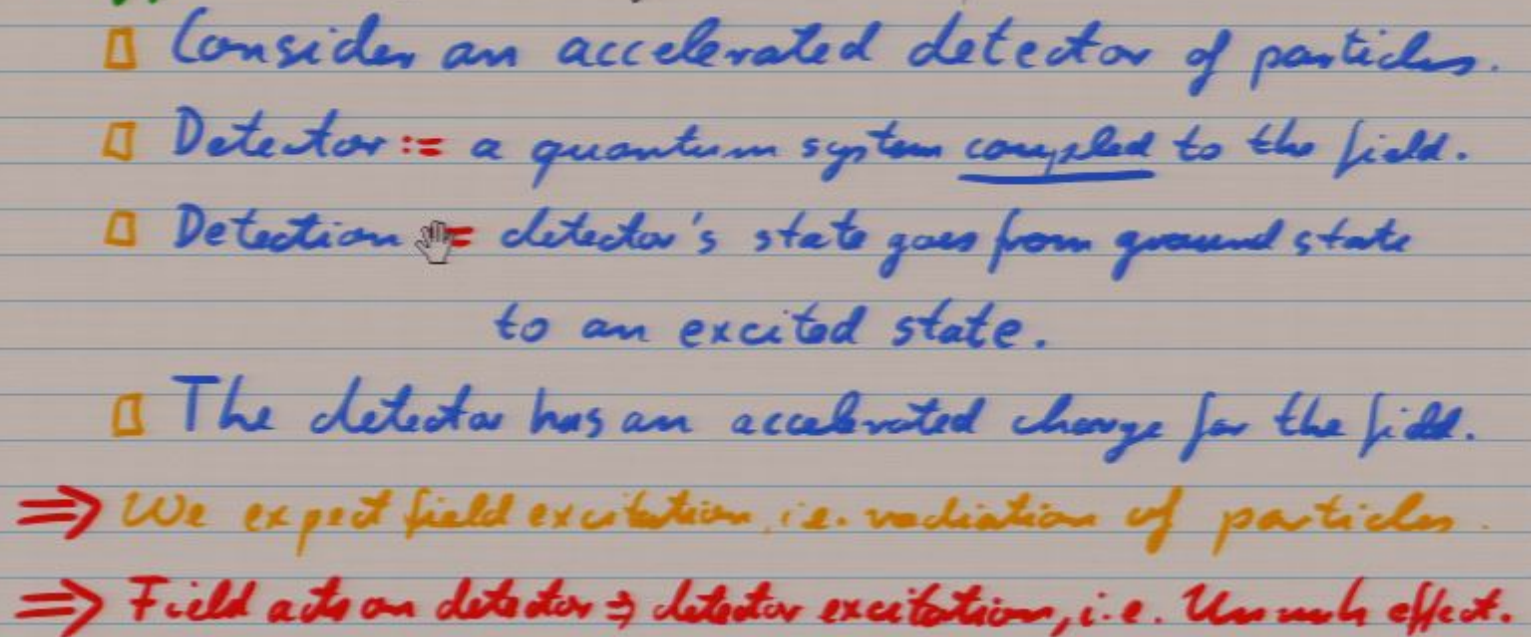 Consider an accelerated detector of particles.
Detector := a quantum system coupled to the field.
Detection = detector's state goes from ground state
to an excited state.
The detector has an accelerated charge for the field.
⇒ We expect field excitation, i.e. radiation of particles.
⇒ Field acts on detector ⇒ detector excitation, i.e. Unruh effect.